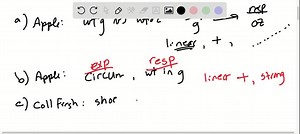 a) Apple: wt g vs wt oz g → resp
oz
linear, +,
exp resp
b) Apple: circum, wt in g linear +, strong
c) Coll Fresh: shoe